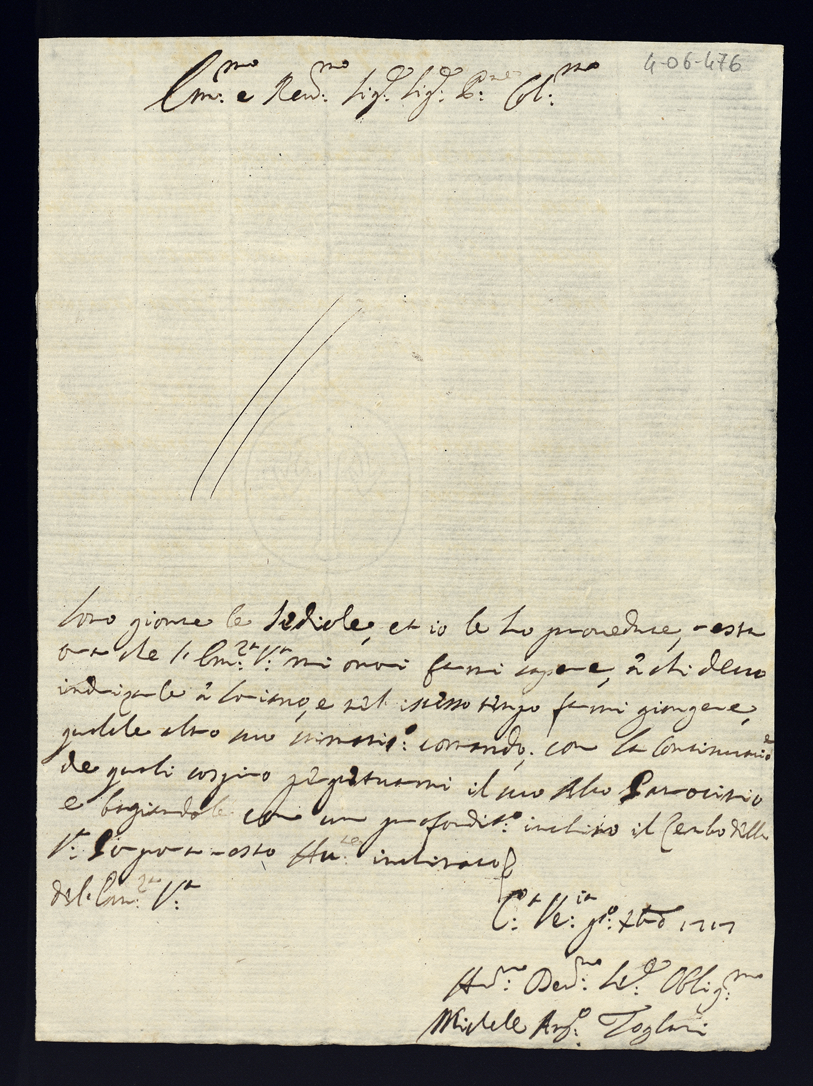 4-06-476
Em:mo e Reu:mo Sig:r Sig:r P:ne Col:mo
Sono gionte le Sediole, et io le ho prouedute, resta
ora che l'Em:za V:ra mi onori farmi sapere, à chi deuo
indirizarle à e nel istesso tempo farmi giongere
qualche altro suo comando; con la Continuatio:e
de quali sospiro perpetuarmi il suo Alto Patrocinio
e bagiandole con un profondis:o inchino il Lembo della
V:ra Porpora resto inchinato
Dell'Em:za V:ra
1717
Hu:mo Deu:mo Se:re Oblig:mo
Michele Ang:o